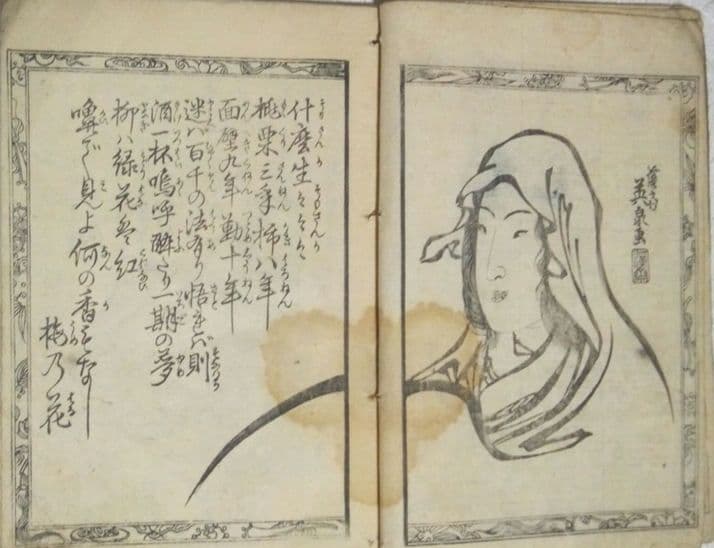 英泉画
什麼生
桃栗三年柿八年
面壁九年勤十年
迷ハ百千の法有り悟れバ則
酒一杯嗚呼酔たり一期の夢
柳ハ緑花は紅
嗅で見よ何の香もなし
梅乃花